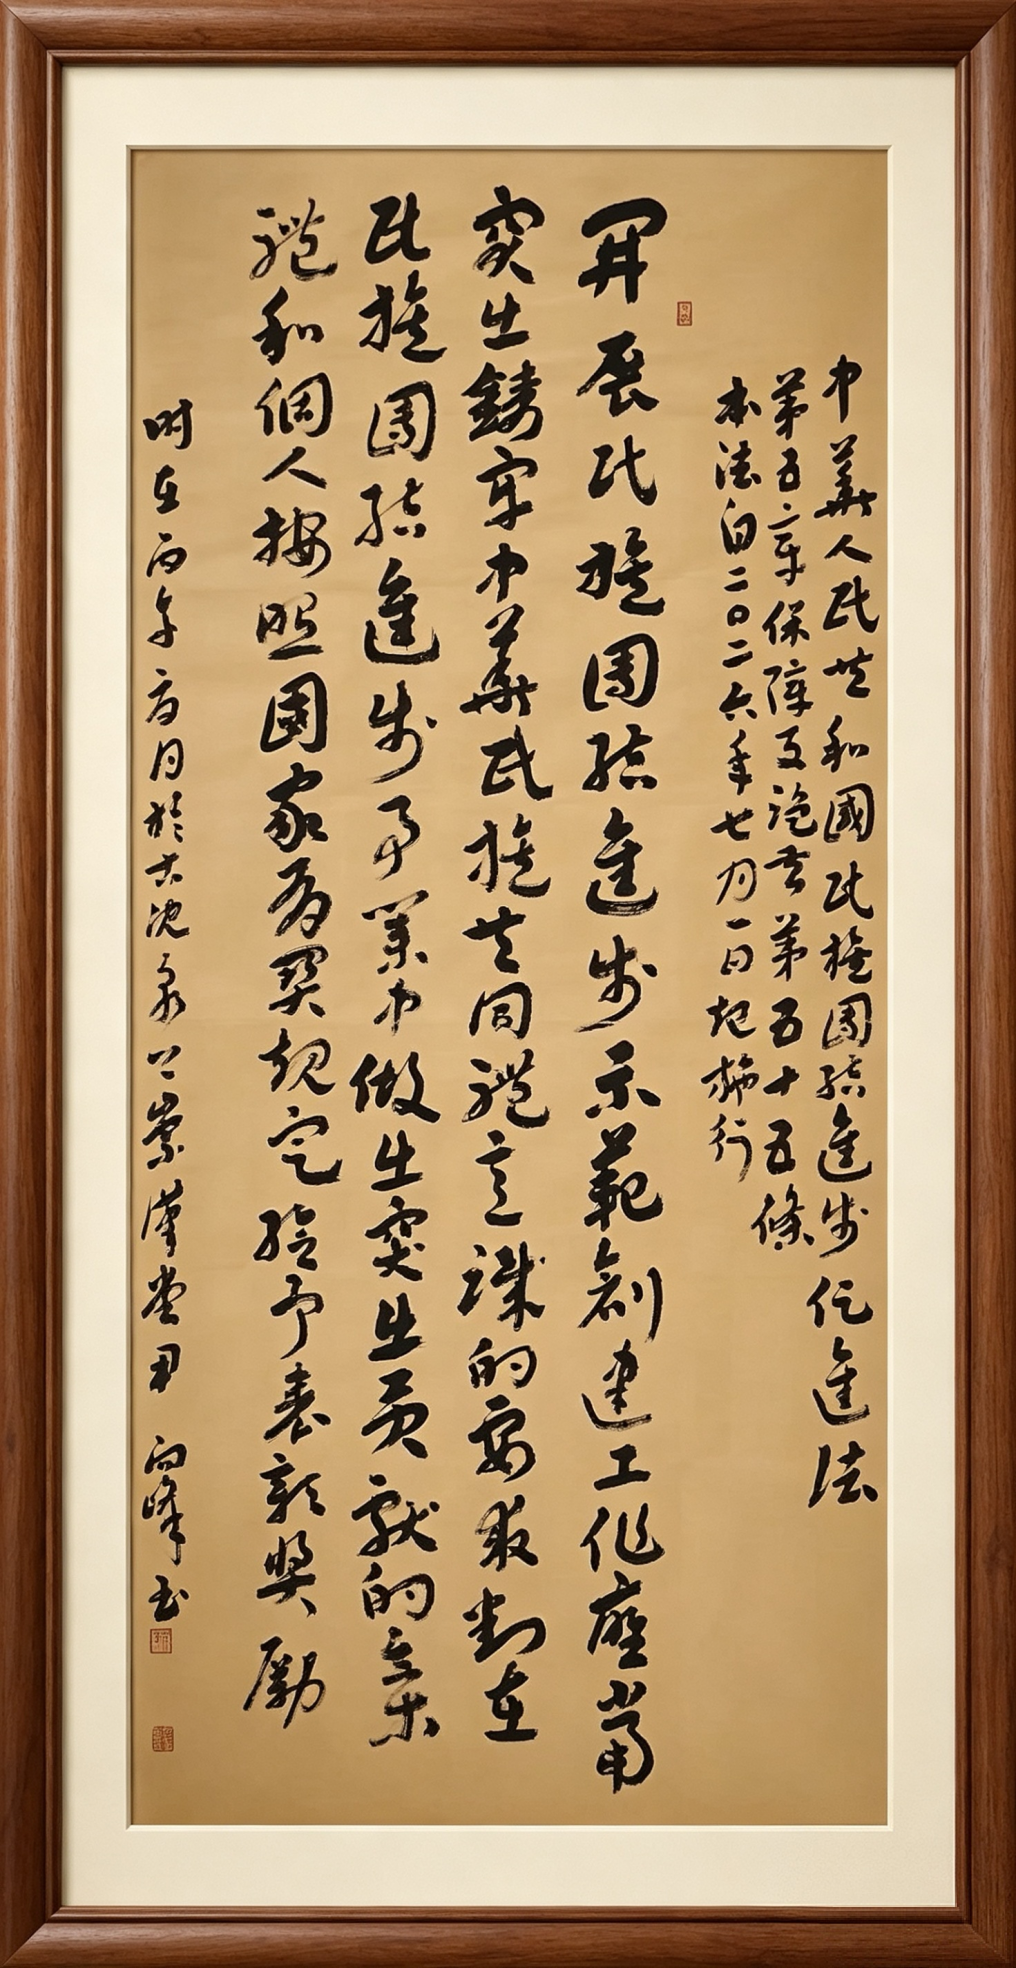 中華人民共和國民族團結進步促進法
第五章保障及監督第五十五條
本法自二〇二六年七月一日起施行
開展民族團結進步示範創建工作應當
突出鑄牢中華民族共同體意識的要求對在
民族團結進步事業中做出突出貢獻的集
體和個人按照國家有關規定給予表彰獎勵
時在丙午夏月於古漢堂尹向峰書